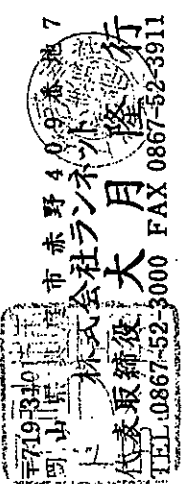 〒719-3140
岡山県 市赤野409番地7
株式会社ランネット
代表取締役 大月隆行
TEL.0867-52-3000 FAX 0867-52-3911